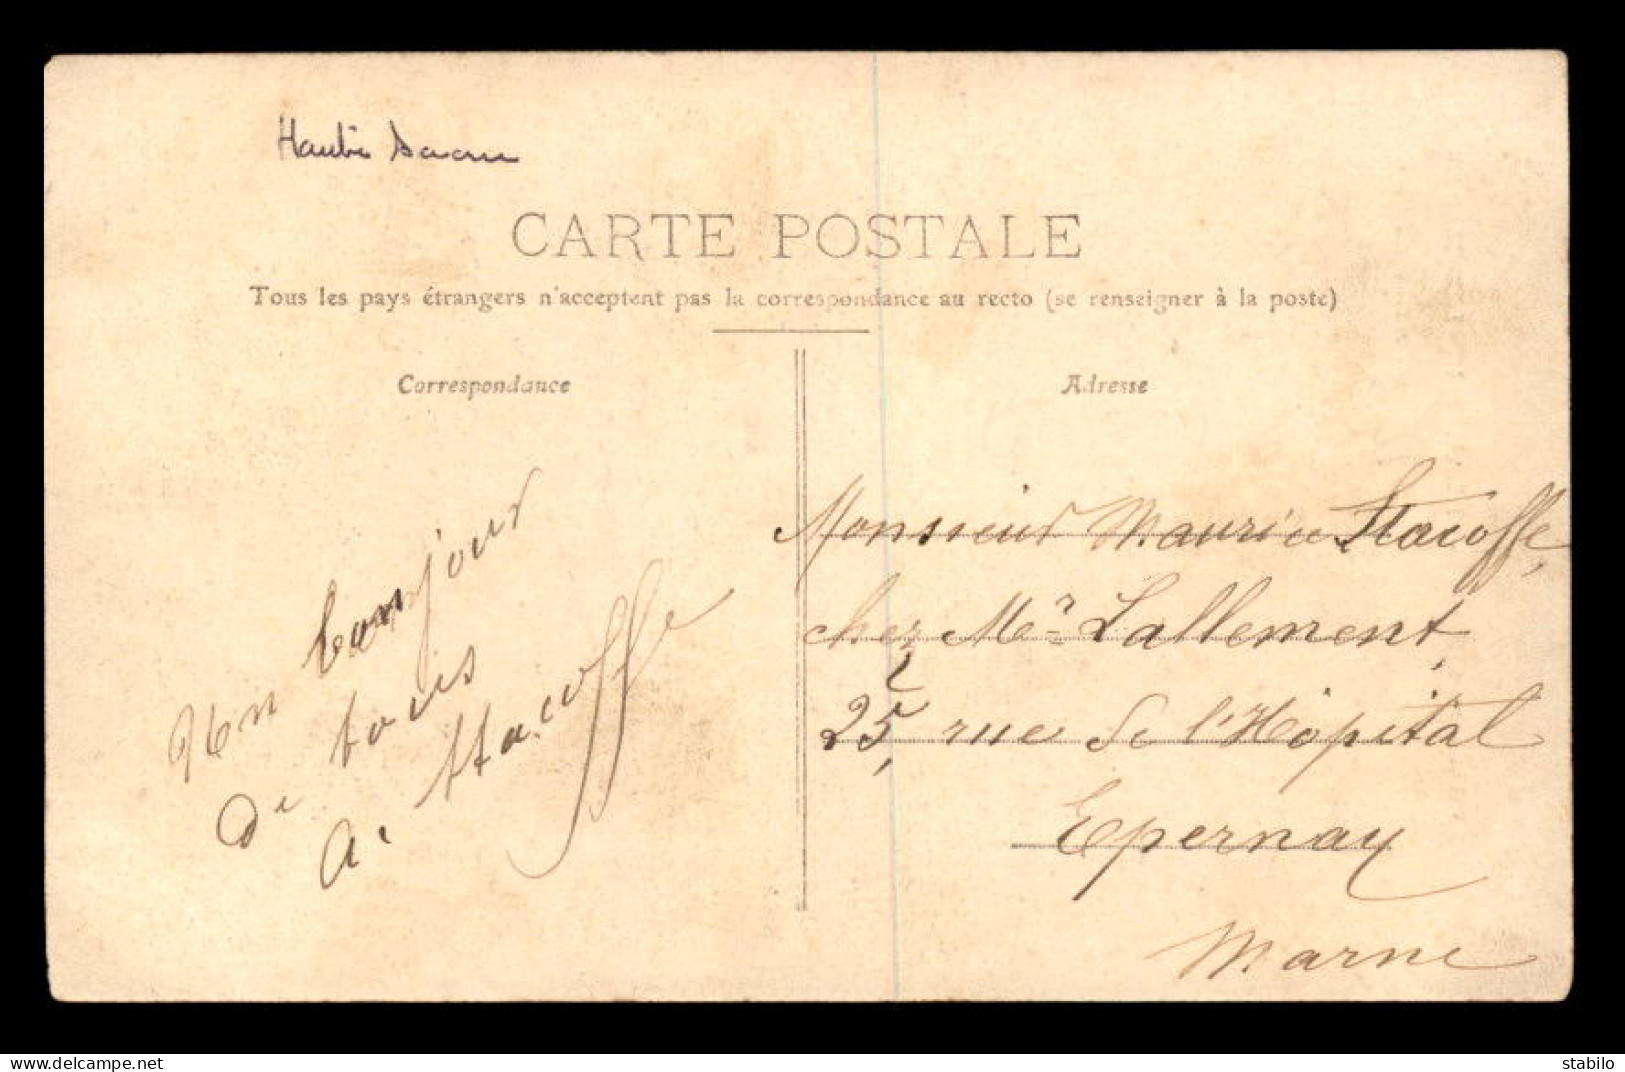 Haute Savoie
CARTE POSTALE
Tous les pays étrangers n'acceptent pas la correspondance au recto (se renseigner à la poste)
Correspondance
Adresse
Un bonjour
de tous
A. Stacoffe
Monsieur Maurice Stacoffe,
chez Mr Lallement,
25, rue de l'Hôpital
Epernay
Marne
delcampe.net
stabilo